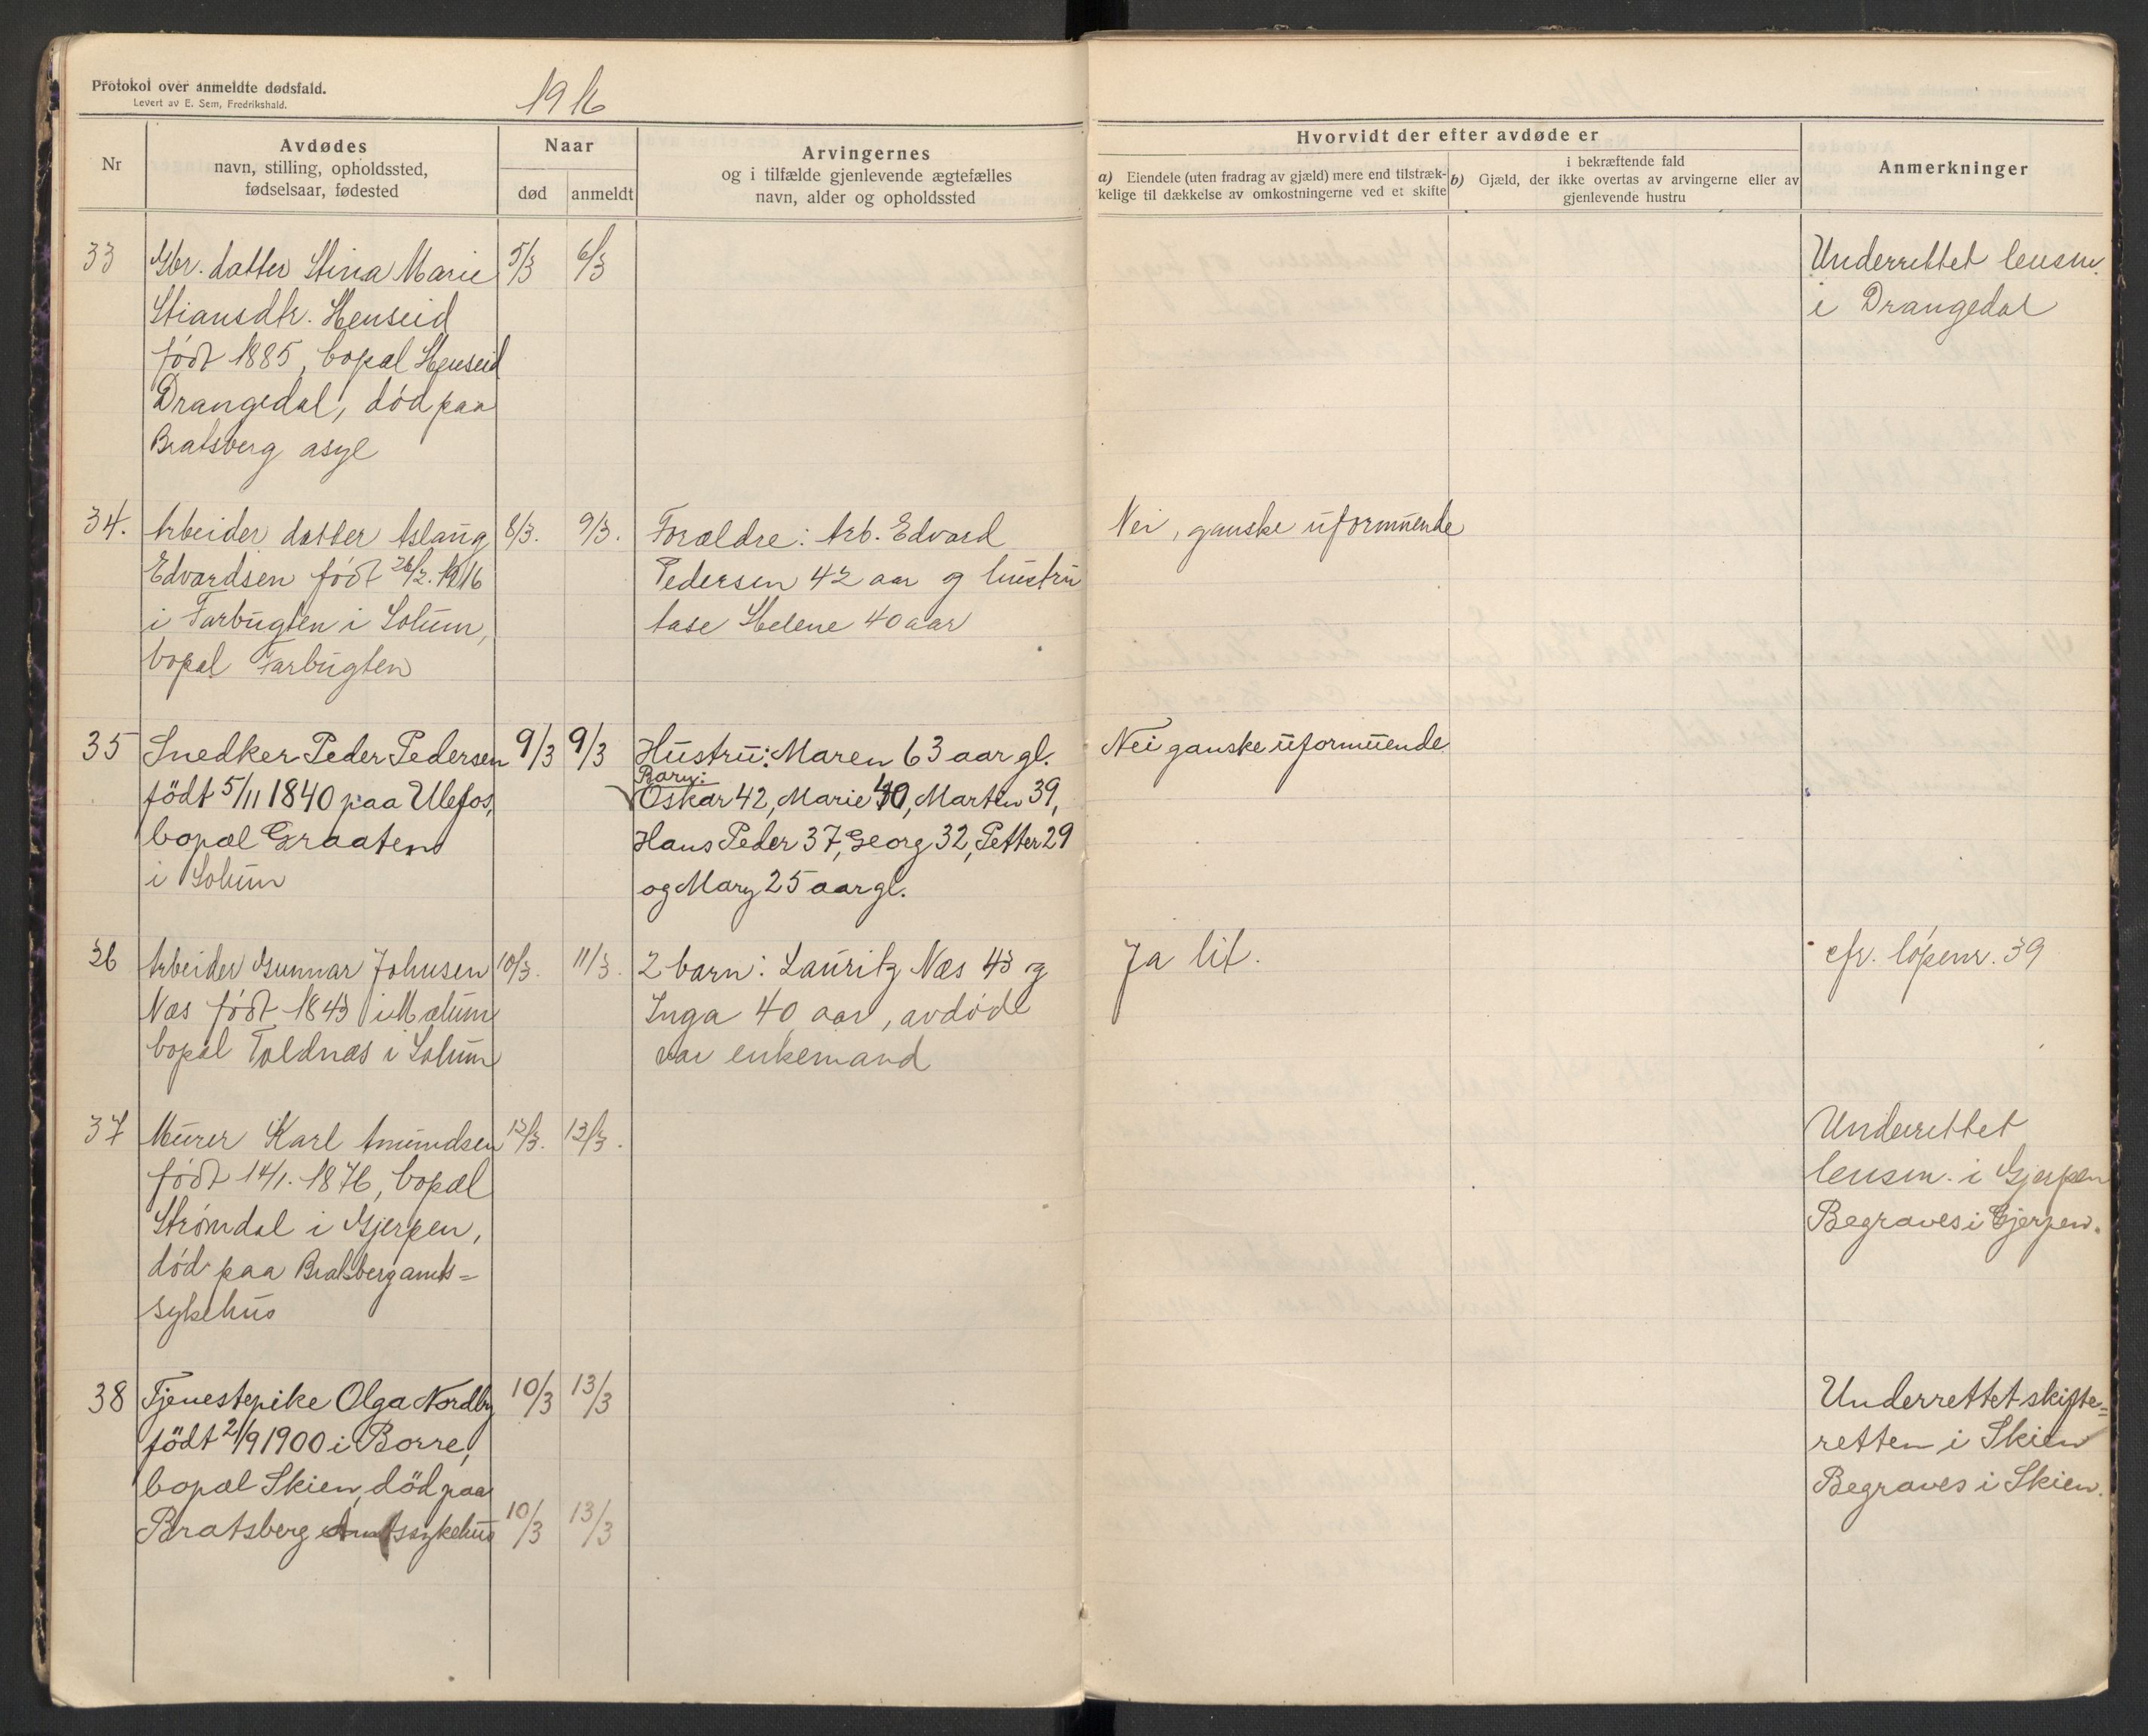 Protokol over anmeldte dødsfald.
Levert av E. Sem, Fredrikshald.
1916
Nr
Avdødes
navn, stilling, opholdssted,
fødselsaar, fødested
Naar
død
anmeldt
Arvingernes
og i tilfælde gjenlevende ægtefælles
navn, alder og opholdssted
Hvorvidt der efter avdøde er
a) Eiendele (uten fradrag av gjæld) mere end tilstræk-
kelige til dækkelse av omkostningerne ved et skifte
i bekræftende fald
b) Gjæld, der ikke overtas av arvingerne eller av
gjenlevende hustru
Anmerkninger
33 Gbr. datter Stina Marie 5/3 6/3 Underrettet lensm.
Stiansdtr. Henseid i Drangedal
født 1885, bopæl Henseid
Drangedal, død paa
Bratsberg asyl
34. Arbeider datter Aslaug 8/3. 9/3. Forældre: Arb. Edvard Nei, ganske uformuende
Edvardsen født 26/2. 1916 Pedersen 42 aar og hustru
i Farbugten i Solum, Aase Helene 40 aar
bopæl Farbugten
35 Snedker Peder Pedersen 9/3 9/3 Hustru: Maren 63 aar gl. Nei ganske uformuende
Barn:
født 5/11 1840 paa Ulefos, Oskar 42, Marie 40, Martin 39,
bopæl Graaten Hans Peder 37, Georg 32, Petter 29
i Solum og Mary 25 aar gl.
36 Arbeider Gunnar Johnsen 10/3. 11/3. 2 barn: Lauritz Næs 43 og Ja lit. cfr. løpenr. 39
Næs født 1843 i Mælum Inga 40 aar, avdøde
bopæl Toldnæs i Solum var enkemand
37 Murer Karl Amundsen 12/3. 13/3. Underrettet
født 14/1. 1876, bopæl lensm. i Gjerpen
Strømdal i Gjerpen, Begraves i Gjerpen.
død paa Bratsberg amts=
sykehus
38 Tjenestepike Olga Nordby 10/3 13/3 Underrettet skifte=
født 2/9 1900 i Borre, retten i Skien
bopæl Skien, død paa Begraves i Skien.
Bratsberg Amtssykehus 10/3 13/3